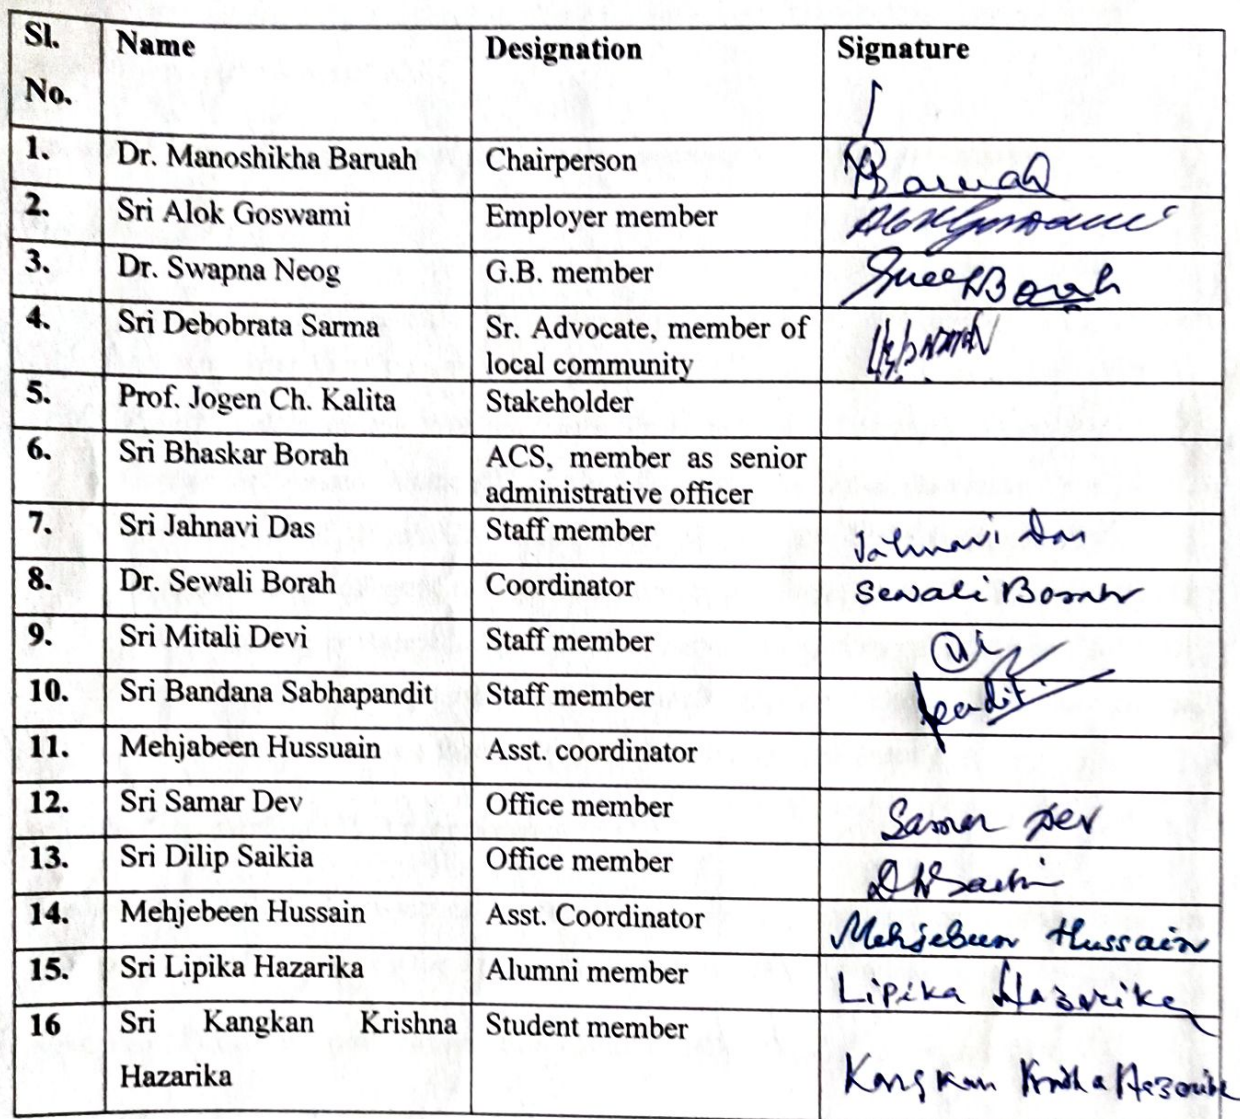 Sl. No. Name Designation Signature
1. Dr. Manoshikha Baruah Chairperson Baruah
2. Sri Alok Goswami Employer member Alok Goswami
3. Dr. Swapna Neog G.B. member Borah
4. Sri Debobrata Sarma Sr. Advocate, member of
local community
5. Prof. Jogen Ch. Kalita Stakeholder
6. Sri Bhaskar Borah ACS, member as senior
administrative officer
7. Sri Jahnavi Das Staff member Jahnavi Das
8. Dr. Sewali Borah Coordinator Sewali Borah
9. Sri Mitali Devi Staff member
10. Sri Bandana Sabhapandit Staff member pandit
11. Mehjabeen Hussuain Asst. coordinator
12. Sri Samar Dev Office member Samar Dev
13. Sri Dilip Saikia Office member
14. Mehjebeen Hussain Asst. Coordinator Mehjebeen Hussain
15. Sri Lipika Hazarika Alumni member Lipika Hazarika
16 Sri Kangkan Krishna Student member
Hazarika Kangkan Krishna Hazarika